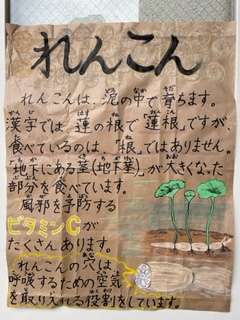 れんこん
れんこんは、泥の中で育ちます。
漢字では「蓮の根で「蓮根」ですが、
食べているのは、「根」ではありません。
「地下にある茎(地下茎)」が大きくなった
部分を食べています。
風邪を予防する
ビタミンCが
たくさんあります。
れんこんの穴は、
呼吸するための空気
を取り入れる役割をしています。